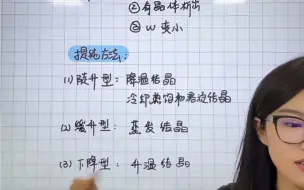 ②有晶体析出
③ w 变小
提纯方法：
(1) 陡升型：降温结晶
冷却热饱和溶液结晶
(2) 缓升型：蒸发结晶
(3) 下降型：升温结晶